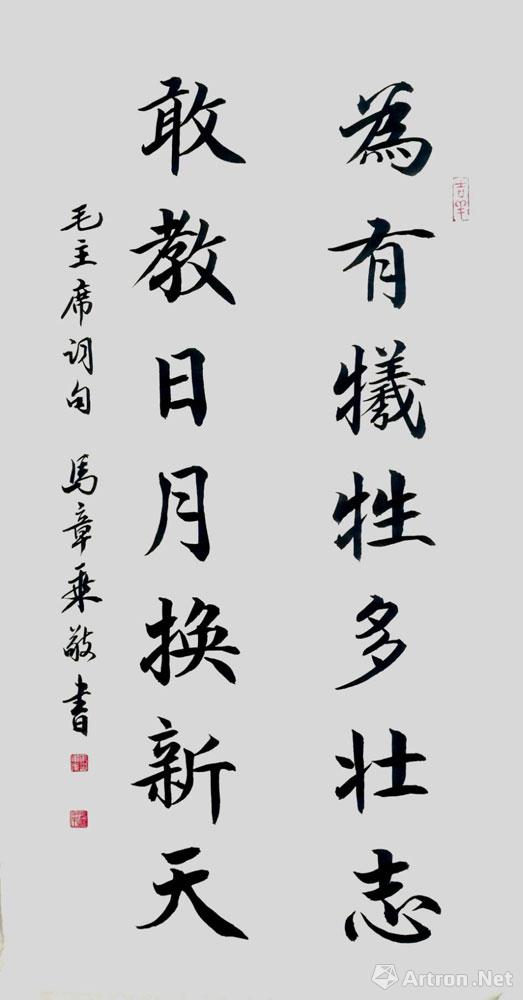 為有犧牲多壯志
敢教日月换新天
毛主席词句 馬章乘敬書
Artron.Net